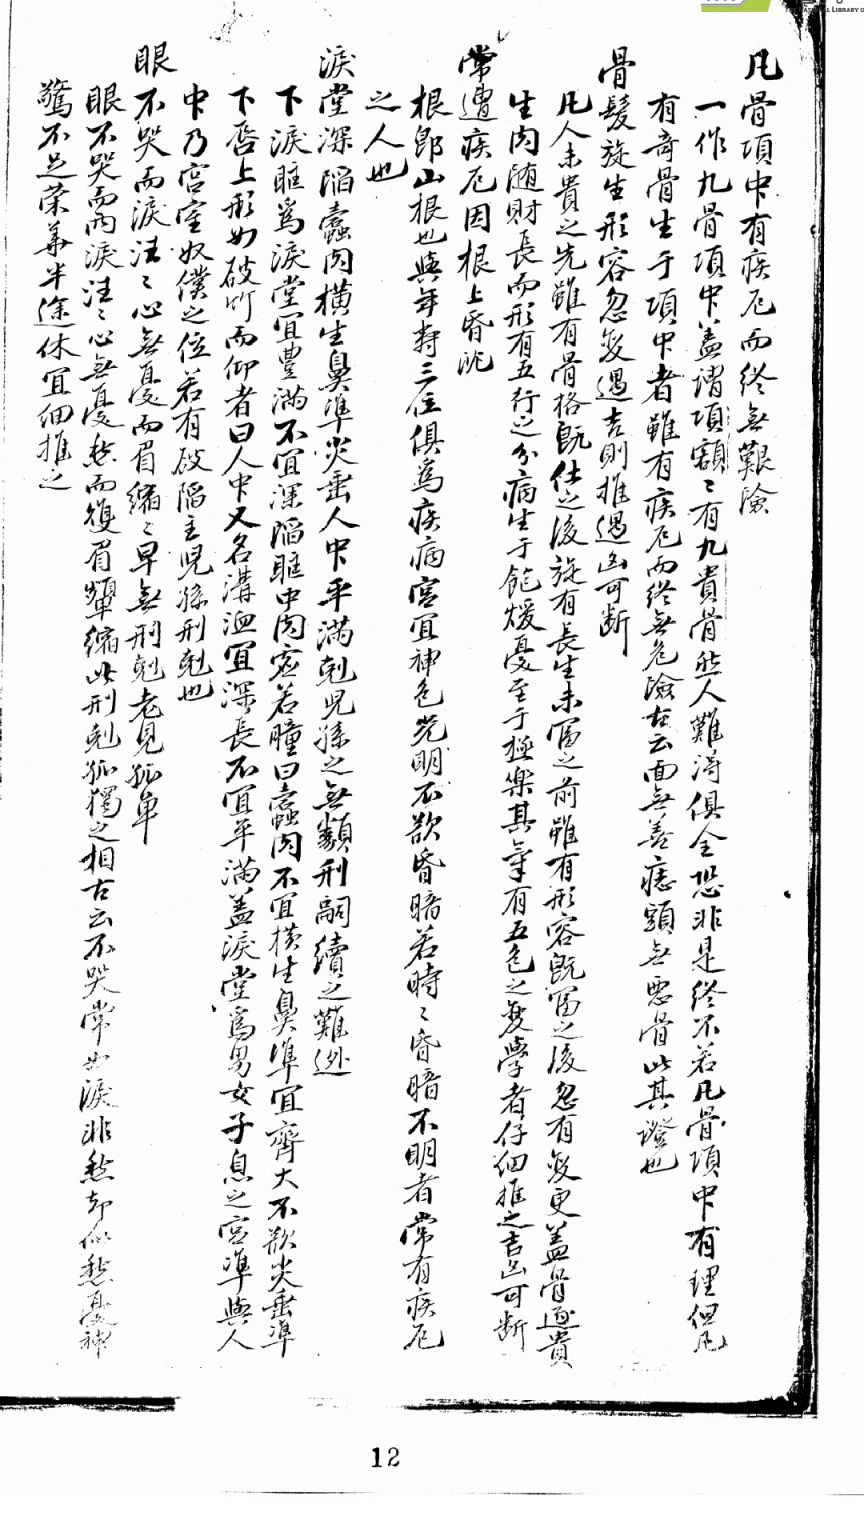 凡骨項中有疾厄而终無艱險
一作九骨項中盖謂項額〻有九貴骨然人難得俱全恐非是終不若凡骨項中有理但凡
有奇骨生于項中者雖有疾厄而終無危險古云面無善痣頭無惡骨此其證也
骨髮旋生形容忽变遇吉則推遇凶可断
凡人未貴之先雖有骨格既仕之後旋有長生未富之前雖有形容既富之後忽有变更盖骨逐貴
生肉随財長而形有五行之分病生于飽煖憂至于極樂其氣有五色之变學者仔細推之吉凶可断
常遭疾厄因根上昏沈
根郎山根也與年壽三位俱爲疾病宮宜神色光明不欲昏暗若時〻昏暗不明者常有疾厄
之人也
淚堂深陷蠹肉横生鼻準尖垂人中平滿剋児孫之無類刑嗣續之難逃
下淚眶爲淚堂宜豊滿不宜深陷眶中肉虚若腫曰蠹肉不宜横生鼻準宜齊大不欲尖垂準
下唇上形如破竹而仰者曰人中又名溝洫宜深長不宜平滿盖淚堂爲男女子息之宮準與人
中乃宮室奴僕之位若有破陷主児孫刑剋也
眼不哭而淚汪〻心無憂而眉縮〻早無刑剋老見孤单
眼不哭而両淚汪〻心無憂愁而雙眉顰縮此刑剋孤獨之相古云不哭常如淚非愁却似愁憂神
驚不足荣華半途休宜細推之
12